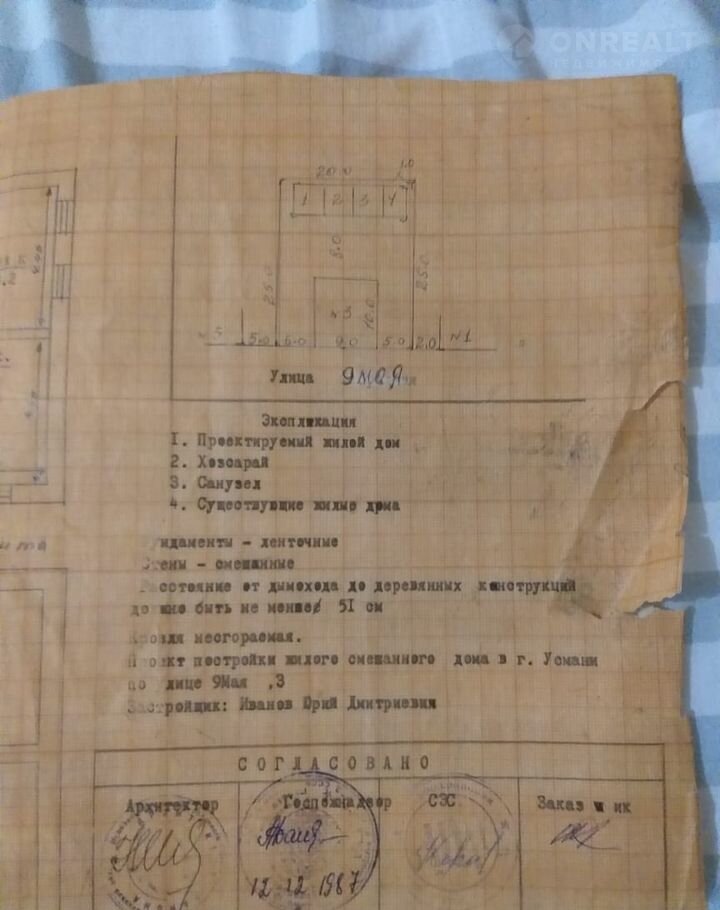 ONREALT
НЕДВИЖИМОСТЬ
20.0
1.0
1 2 3 4
8.0
25.0
25.0
10.0
5.0 9.0 5.0 2.0 N1
Улица 9 мая
Экспликация
I. Проектируемый жилой дом
2. Хозсарай
3. Санузел
4. Существующие жилые дома
Фундаменты - ленточные
Стены - смешанные
Расстояние от дымохода до деревянных конструкций
должно быть не менее 5I см
Кровля несгораемая.
Проект постройки жилого смешанного дома в г. Усмани
по улице 9Мая ,3
Застройщик: Иванов Юрий Дмитриевич
СОГЛАСОВАНО
Архитектор Госпожнадзор СЭС Заказчик
12 12 1987